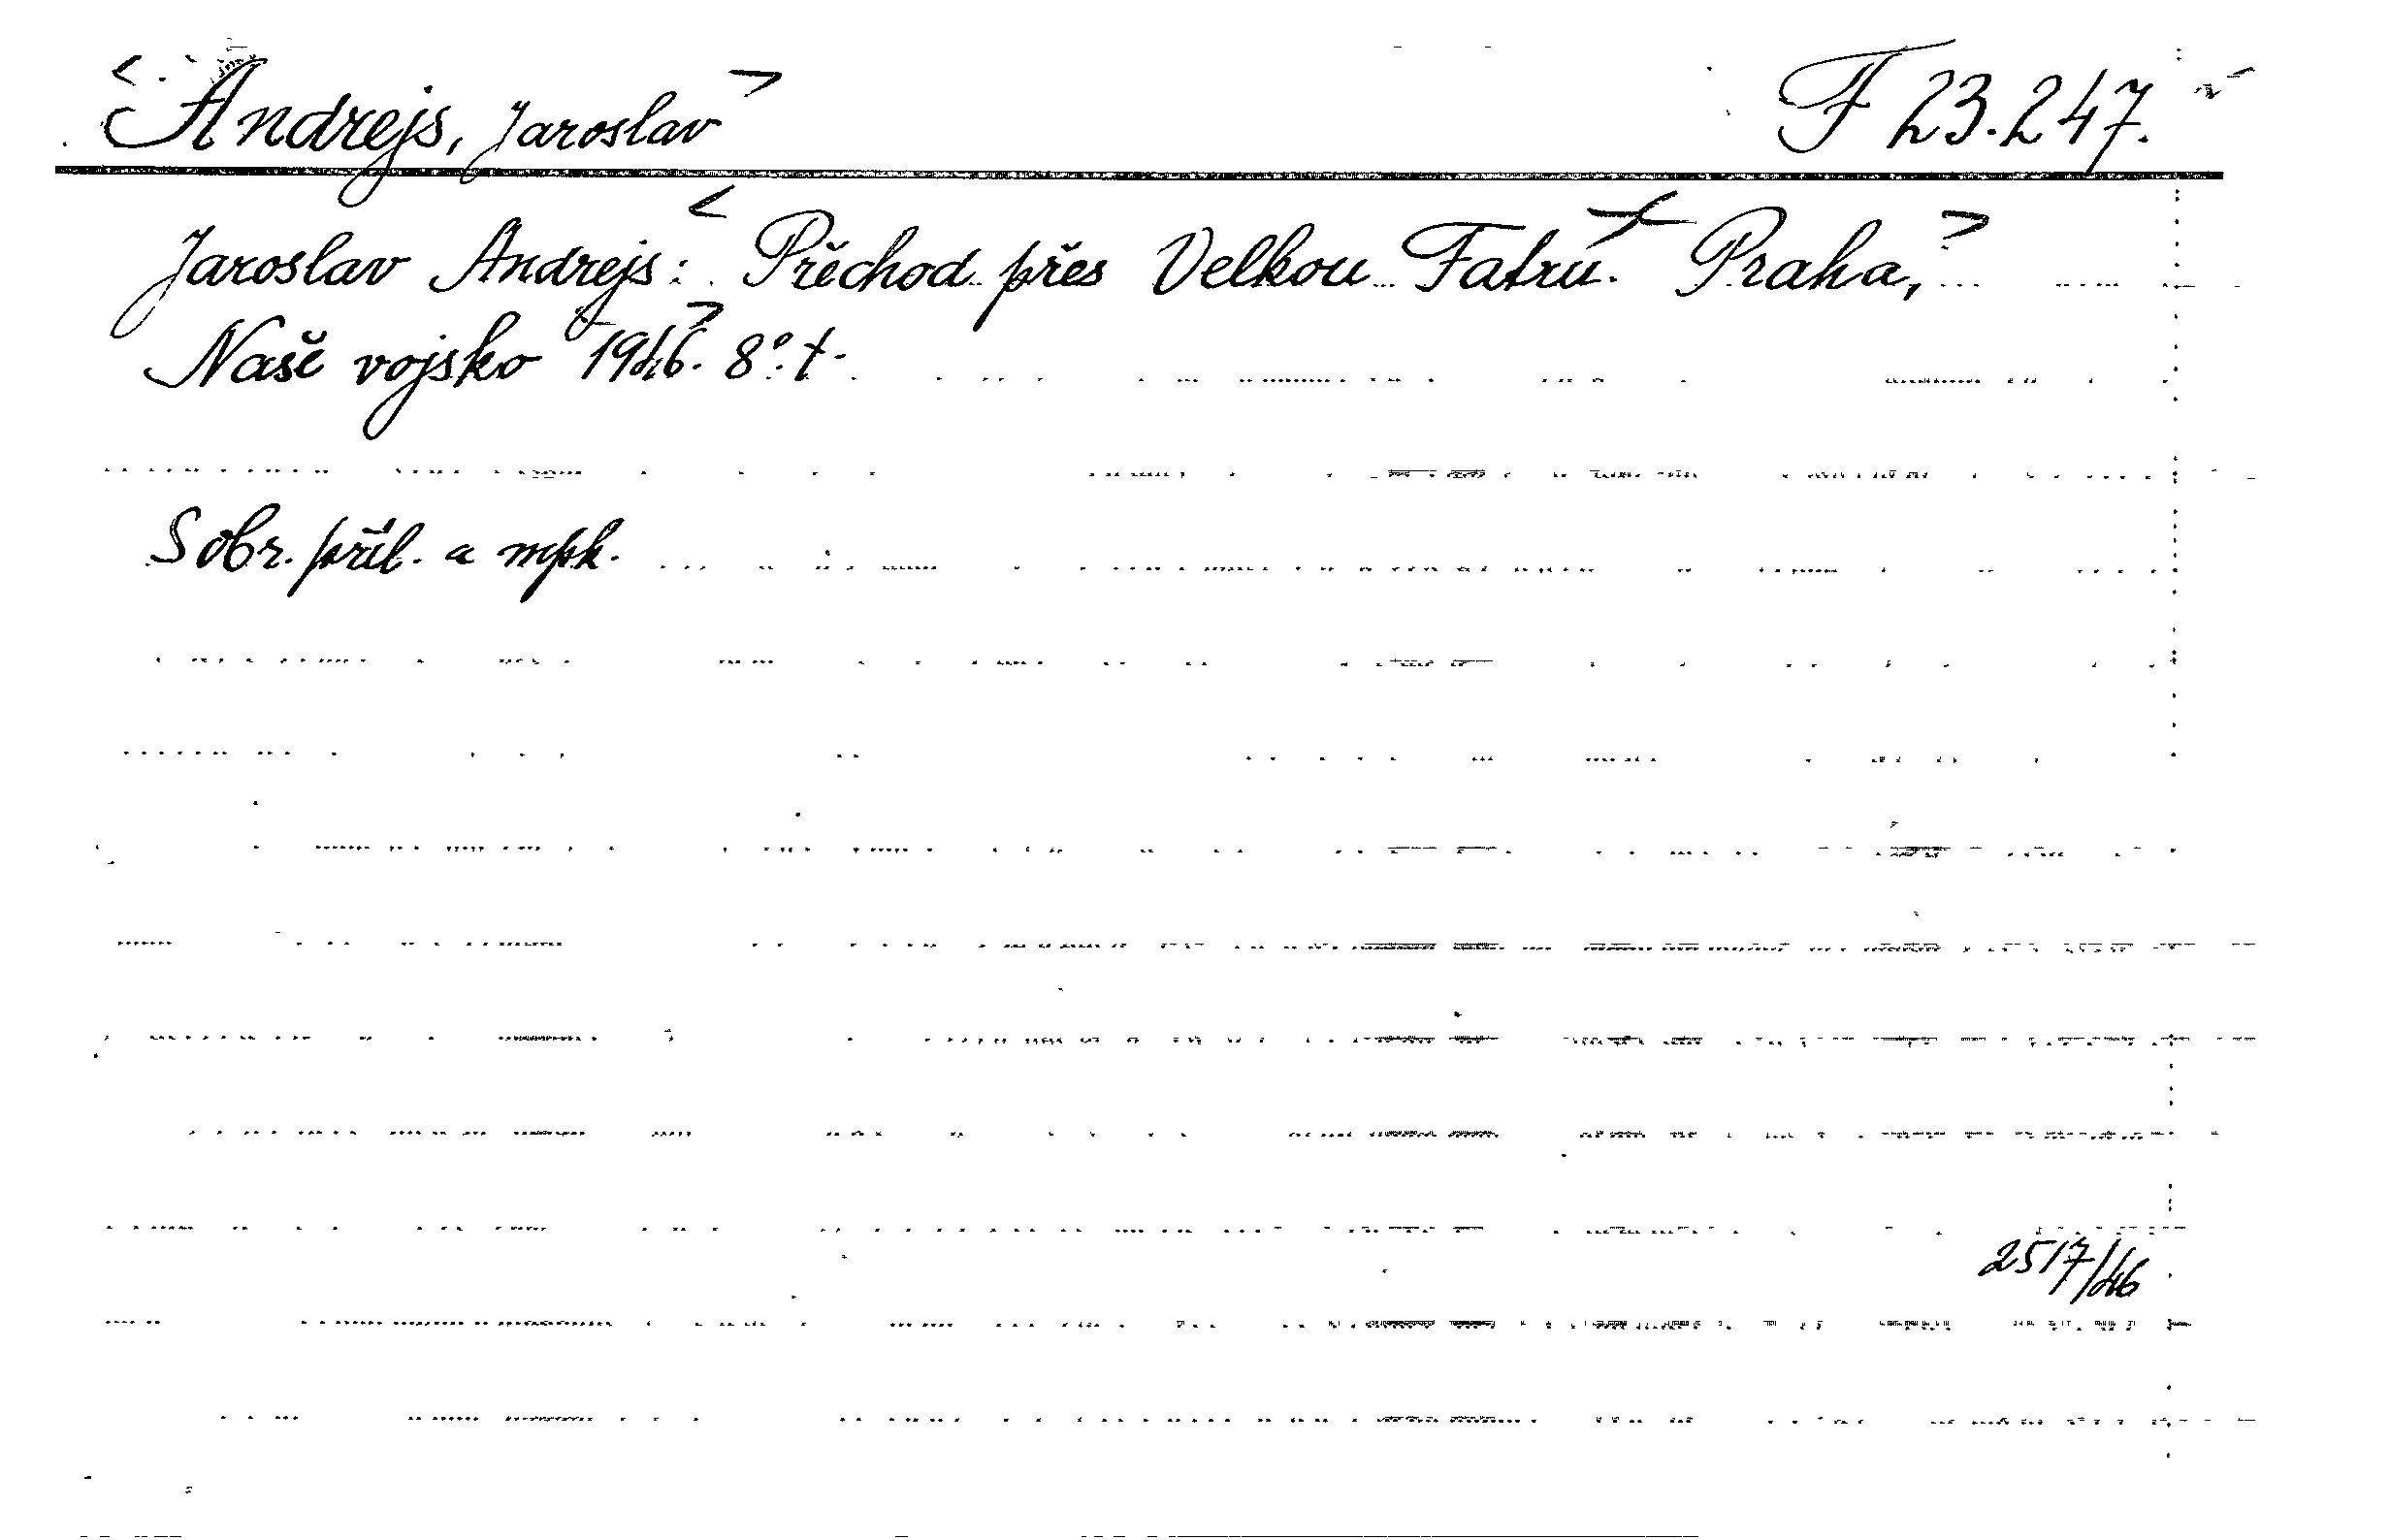 Andrejs, Jaroslav F 23.247.
Jaroslav Andrejs: Přechod přes Velkou Fatru. Praha,
Naše vojsko 1946. 8°. t.
S obr. příl. a mpk.
2517/46